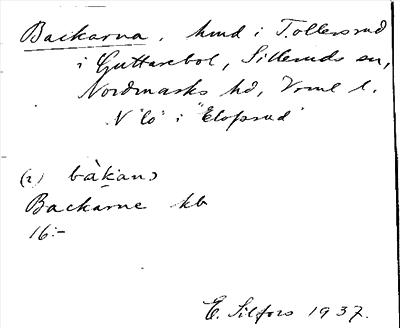 Backarna, hmd i Tollersrud
i Guttarebol, Silleruds sn,
Nordmarks hd, Vrml l.
N "lo" i "Elofsrud"
(2) bàkan
Backarne kb
16:-
E. Silfors 1937.